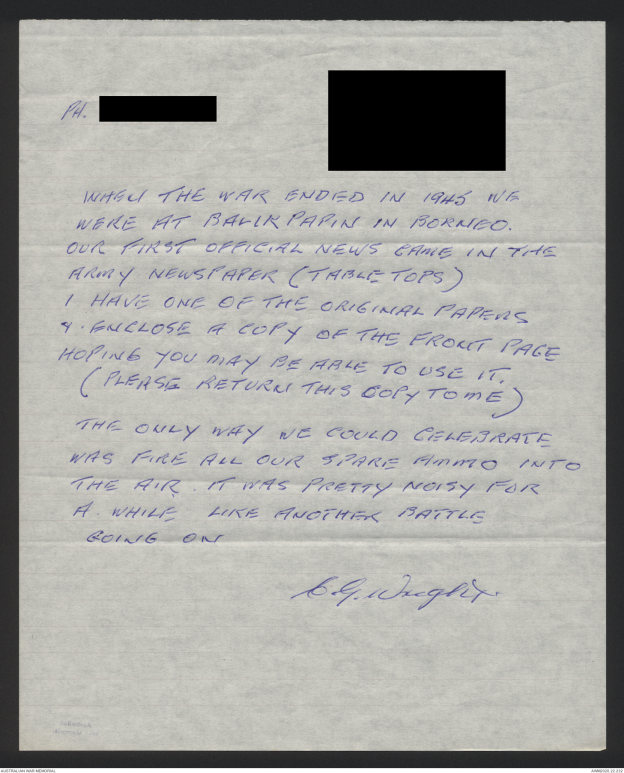 PH.
WHEN THE WAR ENDED IN 1945 WE
WERE AT BALIKPAPIN IN BORNEO.
OUR FIRST OFFICIAL NEWS CAME IN THE
ARMY NEWSPAPER (TABLE TOPS)
I HAVE ONE OF THE ORIGINAL PAPERS
& ENCLOSE A COPY OF THE FRONT PAGE
HOPING YOU MAY BE ABLE TO USE IT.
(PLEASE RETURN THIS COPY TO ME)
THE ONLY WAY WE COULD CELEBRATE
WAS FIRE ALL OUR SPARE AMMO INTO
THE AIR. IT WAS PRETTY NOISY FOR
A. WHILE LIKE ANOTHER BATTLE
GOING ON
C.G. Wright.
AUSTRALIAN WAR MEMORIAL
AWM2020.22.232